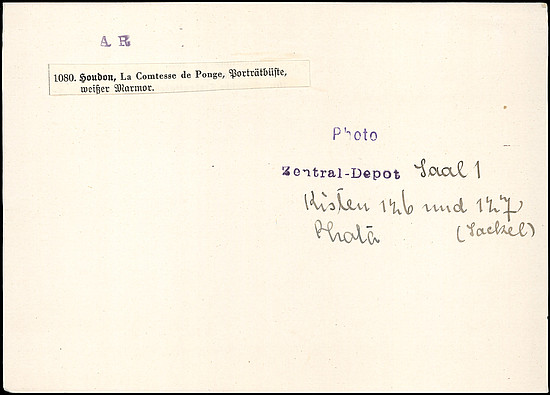 A R
1080. Houdon, La Comtesse de Ponge, Porträtbüste,
weißer Marmor.
Photo
Zentral-Depot Saal 1
Kisten 126 und 127
(Sockel)